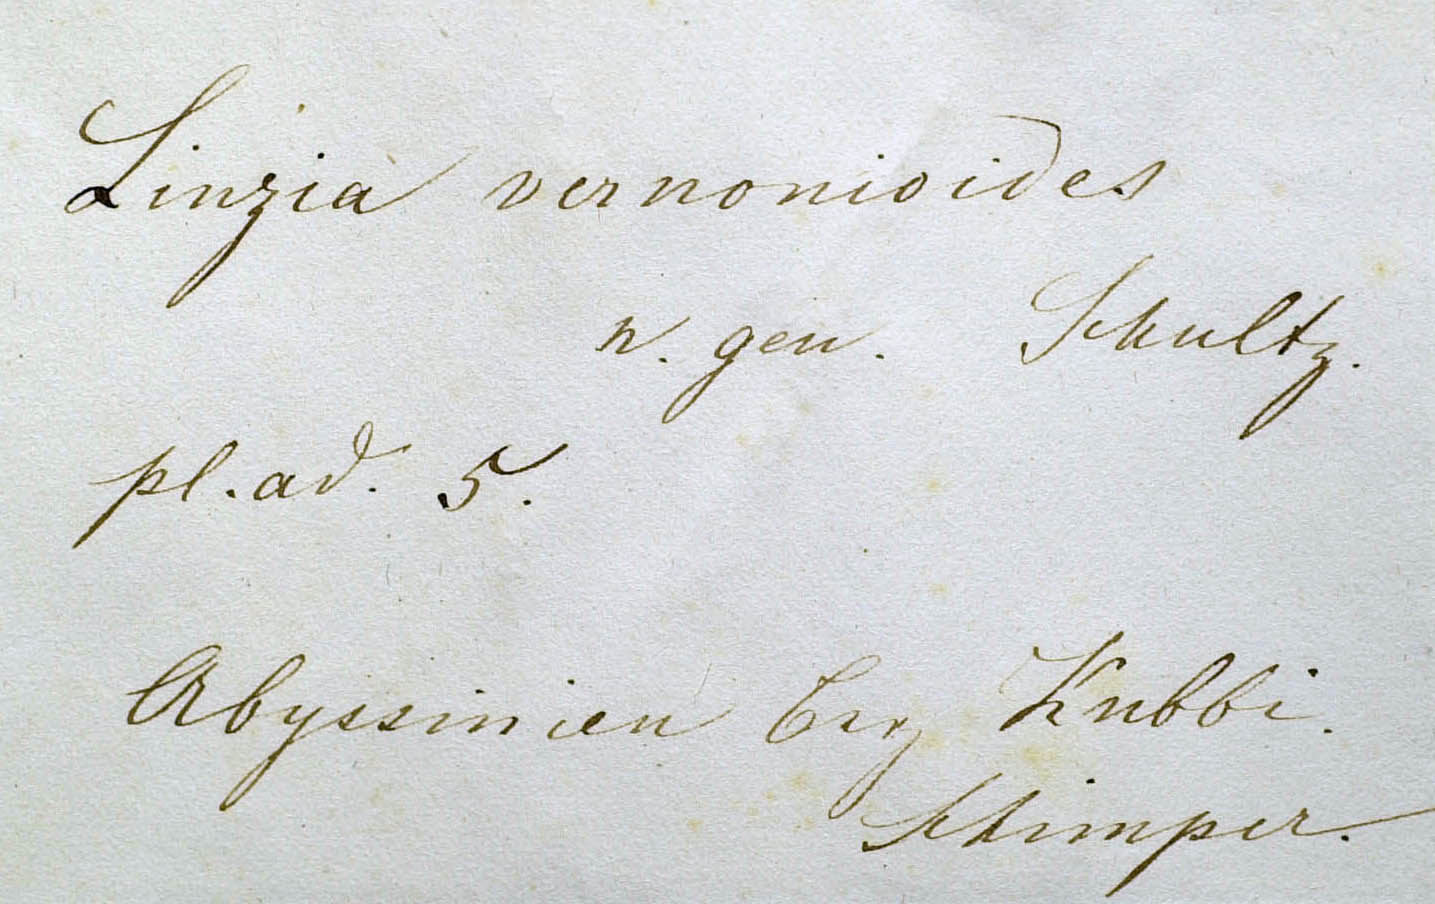 Linzia vernonioides
n. gen. Schultz.
pl. ad. 5.
Abyssinien Berg Kubbi.
Schimper.